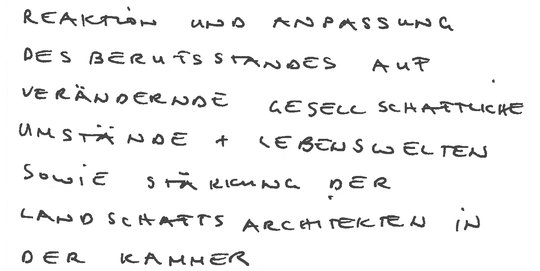 REAKTION UND ANPASSUNG
DES BERUFSSTANDES AUF
VERÄNDERNDE GESELLSCHAFTLICHE
UMSTÄNDE + LEBENSWELTEN
SOWIE STÄRKUNG DER
LANDSCHAFTSARCHITEKTEN IN
DER KAMMER